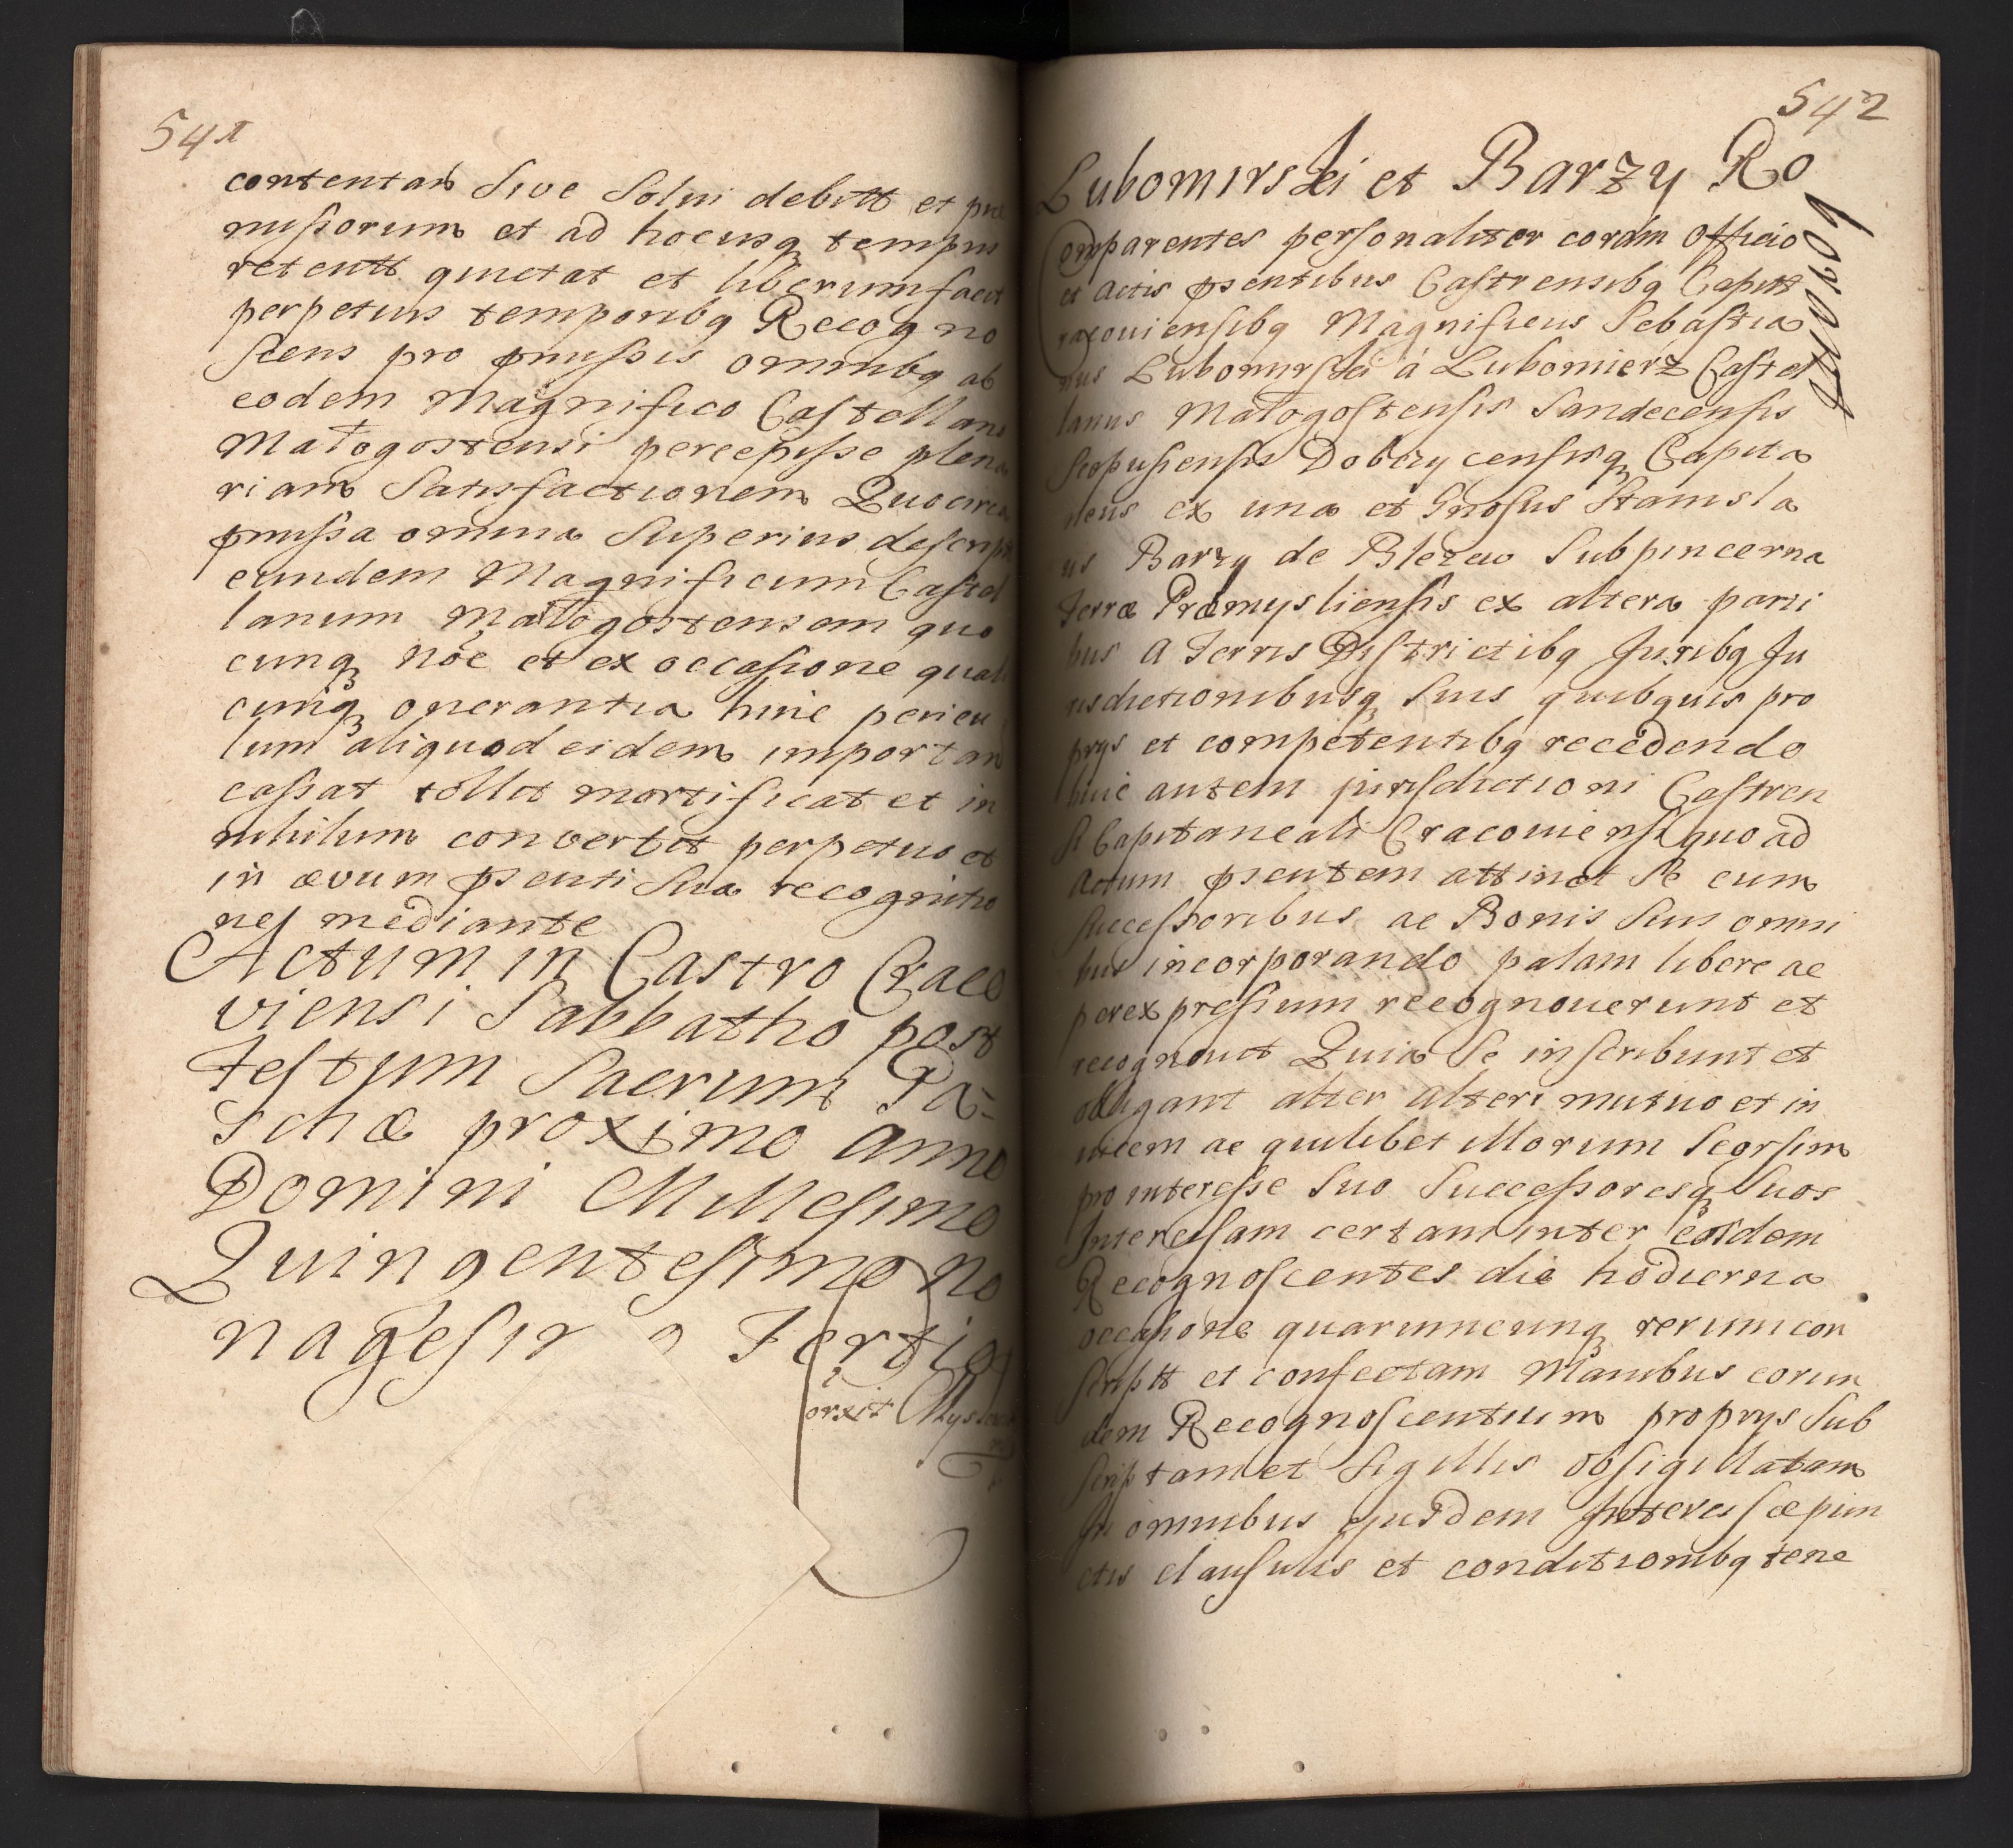 541
contentam Sive Solvi debitt et prae
missorum et ad hocusq tempus
retentt quietat et liberum facit
perpetuis temporibq Recogno
scens pro pmissis omnibq ab
eodem Magnifico Castellano
Małogostensi percepisse plena
riam Satisfactionem Quocirca
pmissa omnia Superius descript
eundem Magnificum Castel
lanum Małogostensem quo
cunq noe et ex occasione quali
cunq onerantia hinc pericu
lum aliquod eidem importan
cassat tollit mortificat et in
nihilum convertit perpetuo et
in ævum psenti Sua recognitio
ne mediante
Actum in Castro Craco
viensi Sabbatho post
Festum Sacrum Pa-
schæ proximo anno
Domini Millesimo
Quingentesimo no
nagesimo Tertio
542
Lubomirski et Barzy Ro
Comparentes personaliter coram Officio
et Actis psentibus Castrensibq Capitt
Cracoviensibq Magnificus Sebastia
nus Lubomirski á Lubomierz Castel
lanus Małogostensis Sandecensis
Scepusiensis Dobczycensisq Capita
neus ex una et Gnosus Stanisla
us Barzy de Blezew Subpincerna
Terræ Præmysliensis ex altera parti
bus a Terris Districtibq Juribq Ju
risdictionibusq Suis quibquis pro
prys et competentibq recedendo
huic autem jurisdictioni Castren
si Capitaneali Cracoviensi quo ad
Actum psentem attinet Se cum
Successoribus ac Bonis Suis omni
bus incorporando palam libere ac
per expressum recognoverunt et
recognovit Quia Se inscribunt et
obligant alter alteri mutuo et in
vicem ac quilibet illorum Seorsim
pro interesse Suo Successoresq Suos
Intercisam certam inter eosdem
Recognoscentes die hodierna
occasione quarumcunq rerum con
scriptt et confectam Manibus eorun
dem Recognoscentium proprys Sub
scriptam et Sigillis obsigillatam
In omnibus ejusdem Intercisæ pun
ctis clausulis et conditionibq tene